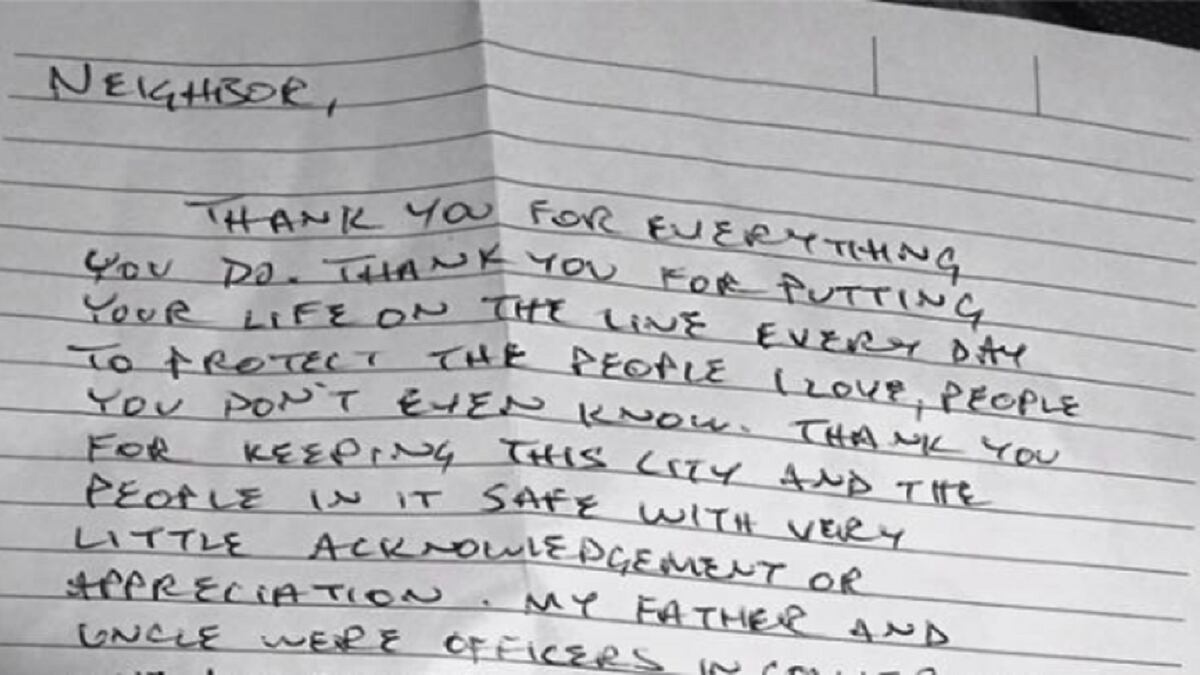 NEIGHBOR,
THANK YOU FOR EVERYTHING
YOU DO. THANK YOU FOR PUTTING
YOUR LIFE ON THE LINE EVERY DAY
TO PROTECT THE PEOPLE I LOVE, PEOPLE
YOU DON'T EVEN KNOW. THANK YOU
FOR KEEPING THIS CITY AND THE
PEOPLE IN IT SAFE WITH VERY
LITTLE ACKNOWLEDGEMENT OR
APPRECIATION. MY FATHER AND
UNCLE WERE OFFICERS IN